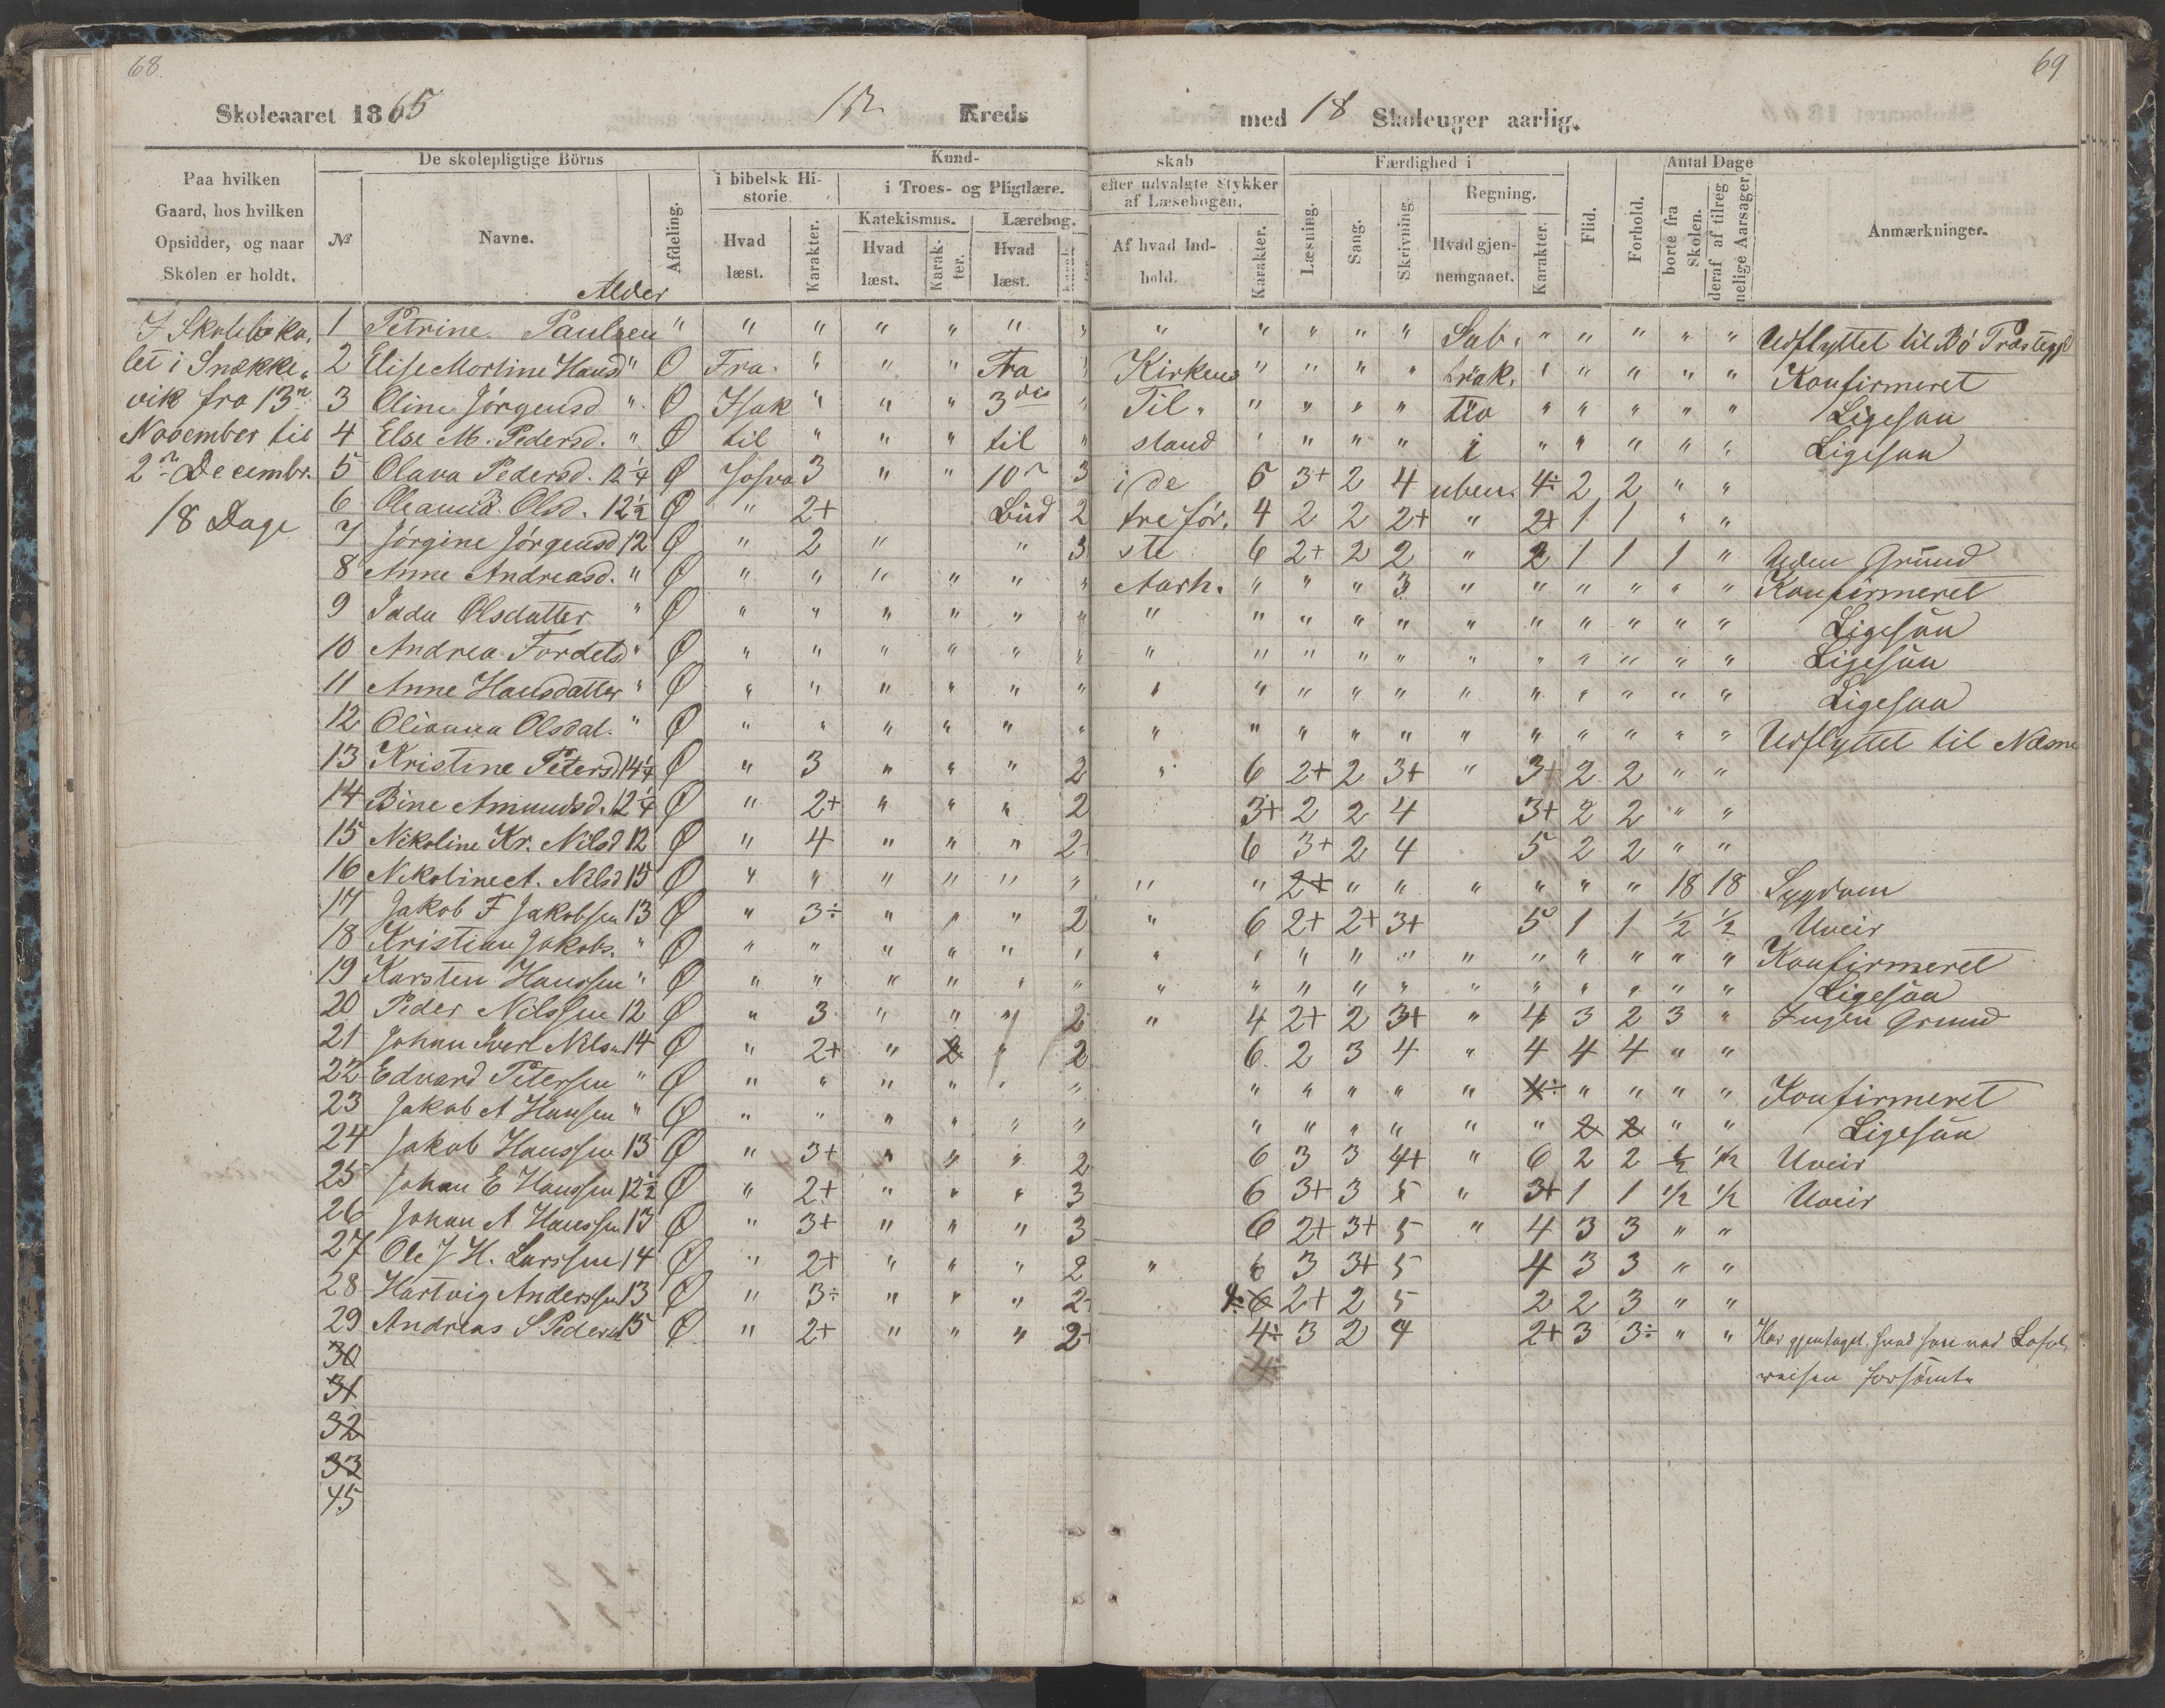 68.
69
Skoleaaret 1865
12 Kreds
med 18 Skoleuger aarlig.
Paa hvilken
Gaard, hos hvilken
Opsidder, og naar
Skolen er holdt.
№
De skolepligtige Börns
Navne.
Alder
Afdeling.
Kund-
i bibelsk Hi-
storie.
Hvad
læst.
Karakter.
i Troes- og Pligtlære.
Katekismus.
Hvad
læst.
Karak-
ter.
Lærebog.
Hvad
læst.
skab
efter udvalgte Stykker
af Læsebogen.
Af hvad Ind-
hold.
Karakter.
Færdighed i
Læsning.
Sang.
Skrivning.
Regning.
Hvad gjen-
nemgaaet.
Karakter.
Flid.
Forhold.
Antal Dage
borte fra
Skolen.
deraf af tilreg-
nelige Aarsager.
Anmærkninger.
I Skoleloka-
let i Snække-
vik fra 13n
November til
2n Decembr.
18 Dage
1 Petrine Paulsen " " " " " " " " " " " " Sub. " " " " " Udflyttet til Bö Præstegjd
2 Elise Martine Hansd " Ø Fra " " " Fra " Kirkens " " " " trak. " " " " " Konfirmeret
3 Oline Jörgensd " Ø Isak " " " 3die " Til- " " " " tio " " " " " Ligesaa
4 Else M. Pedersd. " Ø til " " " til " stand " " " " i " " " " " Ligesaa
5 Olava Pedersd. 12 1/4 Ø Josva 3 " " 10n 3 i de 5 3+ 2 4 uben. 4÷ 2 2 " "
6 Oleanna Olsd. 12 1/2 Ø " 2+ Bud 2 tre för- 4 2 2 2+ " 2+ 1 1 " "
7 Jörgine Jörgensd 12 Ø " 2 " " 3 ste 6 2+ 2 2 " 2 1 1 1 " Uden Grund
8 Anne Andreasd. " Ø " " " " " " Aarh. " " " 3 " " " " " " Konfirmeret
9 Olsdatter " Ø " " " " " " " " " " " " " " " " " Ligesaa
10 Andrea Tordets " Ø " " " " " " " " " " " " " " " " " Ligesaa
11 Anne Hansdatter " Ø " " " " " " " " " " " " " " " " " Ligesaa
12 Olianna Olsdat. " Ø " " " " " " " " " " " " " " " " " Udflyttet til Næsne
13 Kristine Petersd 14 1/4 Ø " 3 " " " 2 " 6 2+ 2 3+ " 3+ 2 2 " "
14 Bine Amundsd. 12 1/4 Ø " 2+ " " " 2 3+ 2 2 4 3+ 2 2 " "
15 Nikoline Kr. Nilsd 12 Ø " 4 " " " 2- 6 3+ 2 4 5 2 2 " "
16 Nikoline A. Nilsd 15 Ø " " " " " " " " 2+ " " " " " " 18 18 Sygdom
17 Jakob F Jakobsen 13 Ø " 3÷ " " " 2 " 6 2+ 2+ 3+ 5 1 1 1/2 1/2 Uveir
18 Kristian Jakobs. " Ø " " " " " " " " " " " " " " " " " Konfirmeret
19 Karsten Hanssen " Ø " " " " " " " " " " " " " " " " " Ligesaa
20 Peder Nilssen 12 Ø " 3 " " " 2 " 4 2+ 2 3+ " 4 3 2 3 " Ingen Grund
21 Johan Iver Nils. 14 Ø " 2+ " 2 " 2 6 2 3 4 " 4 4 4 " "
22 Edvard Petersen " Ø " " " " " " " " " " " 4÷ " " " " Konfirmeret
23 Jakob A Hansen " Ø " " " " " " " " " " " " 2 2 " " Ligesaa
24 Jakob Hanssen 13 Ø " 3+ " " " 2 6 3 3 4+ " 6 2 2 1/2 1/2 Uveir
25 Johan E Hanssen 12 1/2 Ø " 2+ " " " 3 6 3+ 3 5 " 3+ 1 1 1/2 1/2 Uveir
26 Johan A Hanssen 13 Ø " 3+ " " " 3 6 2+ 3+ 5 " 4 3 3 " "
27 Ole J H. Larssen 14 Ø " 2+ " " " 2 " 6 3 3+ 5 4 3 3 " "
28 Hartvig Anderssen 13 Ø " 3÷ " " " 2- 6 2+ 2 5 2 2 3 " "
29 Andreas S Peders 15 Ø " 2+ " " " 2- 4÷ 3 2 4 2+ 3 3÷ " " Har gjentaget, hvad han ved Lofot-
reisen forsömte
30
31
32
33
45